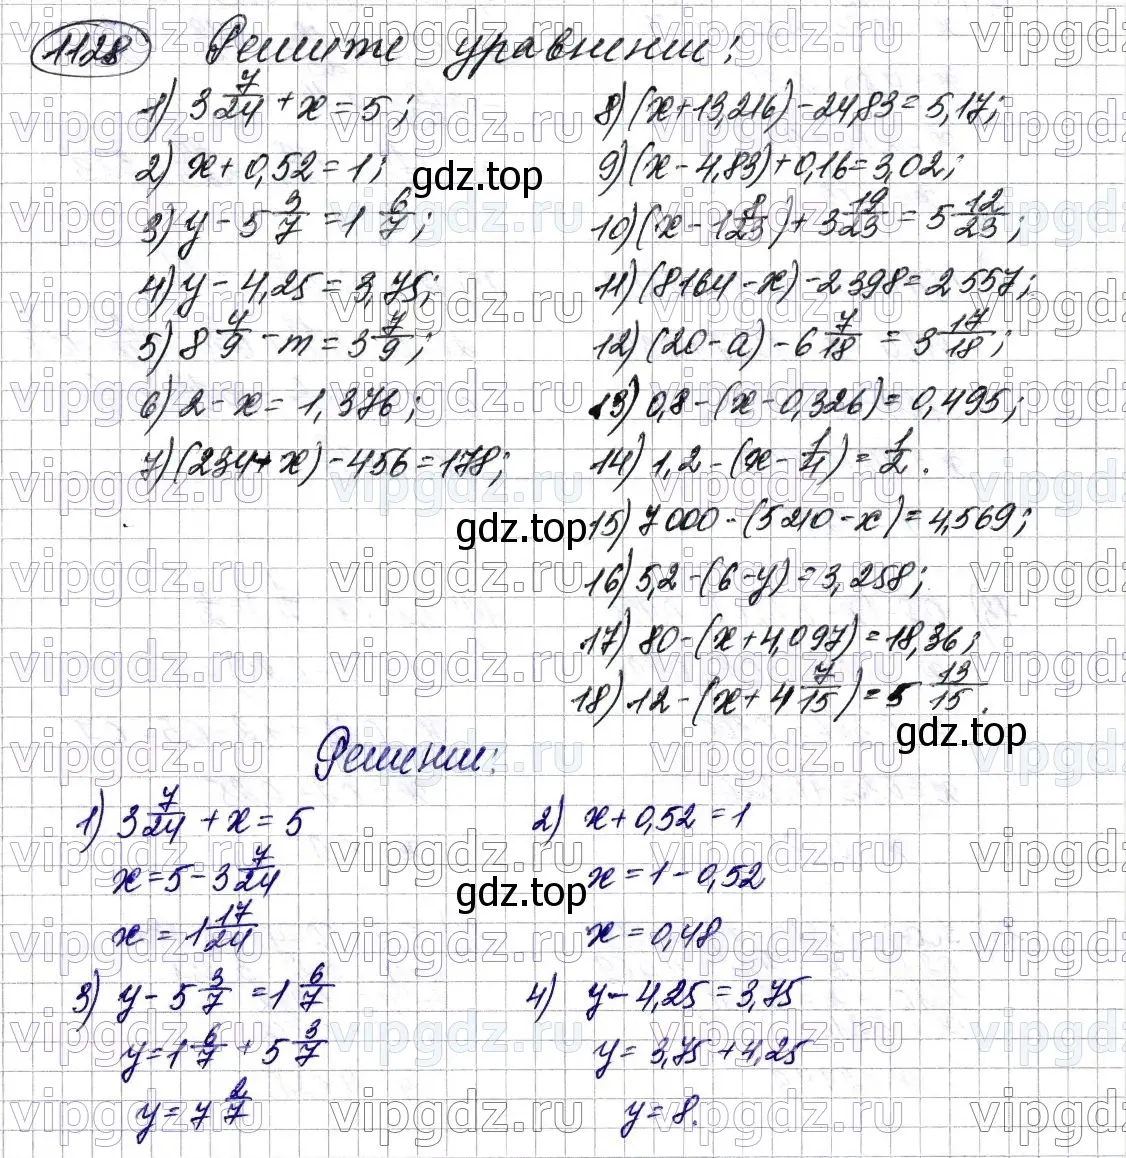 1128 Решите уравнении:
1) 3 7/24 + x = 5;
2) x + 0,52 = 1;
3) y - 5 3/7 = 1 6/7;
4) y - 4,25 = 3,75;
5) 8 4/9 - m = 3 7/9;
6) 2 - x = 1,376;
7) (234 + x) - 456 = 178;
8) (x + 13,216) - 24,83 = 5,17;
9) (x - 4,83) + 0,16 = 3,02;
10) (x - 1 8/23) + 3 19/23 = 5 12/23;
11) (8164 - x) - 2398 = 2557;
12) (20 - a) - 6 7/18 = 3 17/18;
13) 0,8 - (x - 0,326) = 0,495;
14) 1,2 - (x - 1/4) = 1/2.
15) 7000 - (5210 - x) = 4,569;
16) 5,2 - (6 - y) = 3,258;
17) 80 - (x + 4,097) = 18,36;
18) 12 - (x + 4 7/15) = 5 13/15.
gdz.top
gdz.top
gdz.top
Решении:
1) 3 7/24 + x = 5
x = 5 - 3 7/24
x = 1 17/24
2) x + 0,52 = 1
x = 1 - 0,52
x = 0,48
gdz.top
3) y - 5 3/7 = 1 6/7
y = 1 6/7 + 5 3/7
y = 7 2/7
4) y - 4,25 = 3,75
y = 3,75 + 4,25
y = 8.
vipgdz.ru